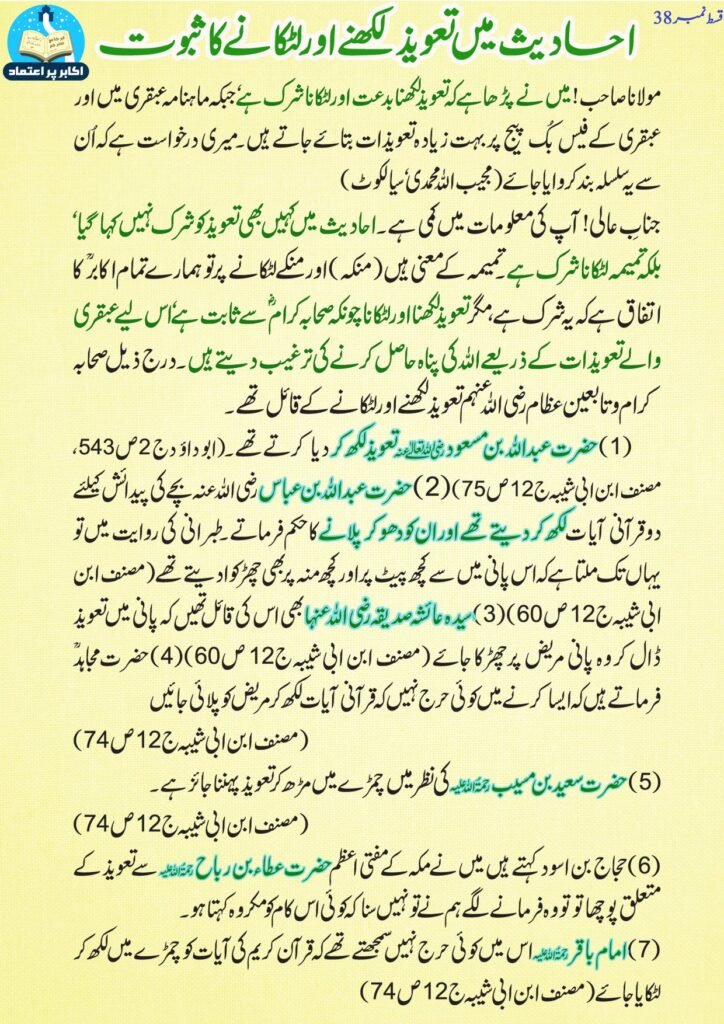 قسط نمبر 38
احادیث میں تعویذ لکھنے اور لٹکانے کا ثبوت
اکابر پر اعتماد
مولانا صاحب! میں نے پڑھا ہے کہ تعویذ لکھنا بدعت اور لٹکانا شرک ہے جبکہ ماہنامہ عبقری میں اور
عبقری کے فیس بُک پیج پر بہت زیادہ تعویذات بتائے جاتے ہیں۔ میری درخواست ہے کہ اُن
سے یہ سلسلہ بند کروایا جائے (مجیب اللہ محمدی، سیالکوٹ)
جنابِ عالی! آپ کی معلومات میں کمی ہے۔ احادیث میں کہیں بھی تعویذ کو شرک نہیں کہا گیا،
بلکہ تمیمہ لٹکانا شرک ہے۔ تمیمہ کے معنی ہیں (منکہ) اور منکے لٹکانے پر تو ہمارے تمام اکابرؒ کا
اتفاق ہے کہ یہ شرک ہے، مگر تعویذ لکھنا اور لٹکانا چونکہ صحابہ کرامؓ سے ثابت ہے، اس لیے عبقری
والے تعویذات کے ذریعے اللہ کی پناہ حاصل کرنے کی ترغیب دیتے ہیں۔ درج ذیل صحابہ
کرام و تابعین عظام رضی اللہ عنہم تعویذ لکھنے اور لٹکانے کے قائل تھے۔
(1) حضرت عبداللہ بن مسعود رضی اللہ تعالیٰ عنہ تعویذ لکھ کر دیا کرتے تھے۔ (ابوداؤد ج 2 ص 543،
مصنف ابن ابی شیبہ ج 12 ص 75) (2) حضرت عبداللہ بن عباس رضی اللہ عنہ بچے کی پیدائش کیلئے
دو قرآنی آیات لکھ کر دیتے تھے اور ان کو دھو کر پلانے کا حکم فرماتے۔ طبرانی کی روایت میں تو
یہاں تک ملتا ہے کہ اس پانی میں سے کچھ پیٹ پر اور کچھ منہ پر بھی چھڑکوا دیتے تھے (مصنف ابن
ابی شیبہ ج 12 ص 60) (3) سیدہ عائشہ صدیقہ رضی اللہ عنہا بھی اس کی قائل تھیں کہ پانی میں تعویذ
ڈال کر وہ پانی مریض پر چھڑکا جائے (مصنف ابن ابی شیبہ ج 12 ص 60) (4) حضرت مجاہدؒ
فرماتے ہیں کہ ایسا کرنے میں کوئی حرج نہیں کہ قرآنی آیات لکھ کر مریض کو پلائی جائیں
(مصنف ابن ابی شیبہ ج 12 ص 74)
(5) حضرت سعید بن مسیب رحمۃ اللہ علیہ کی نظر میں چمڑے میں مڑھ کر تعویذ پہننا جائز ہے۔
(مصنف ابن ابی شیبہ ج 12 ص 74)
(6) حجاج بن اسود کہتے ہیں میں نے مکہ کے مفتی اعظم حضرت عطاء بن رباح رحمۃ اللہ علیہ سے تعویذ کے
متعلق پوچھا تو تو وہ فرمانے لگے ہم نے تو نہیں سنا کہ کوئی اس کام کو مکروہ کہتا ہو۔
(7) امام باقر رحمۃ اللہ علیہ اس میں کوئی حرج نہیں سمجھتے تھے کہ قرآن کریم کی آیات کو چمڑے میں لکھ کر
لٹکایا جائے (مصنف ابن ابی شیبہ ج 12 ص 74)